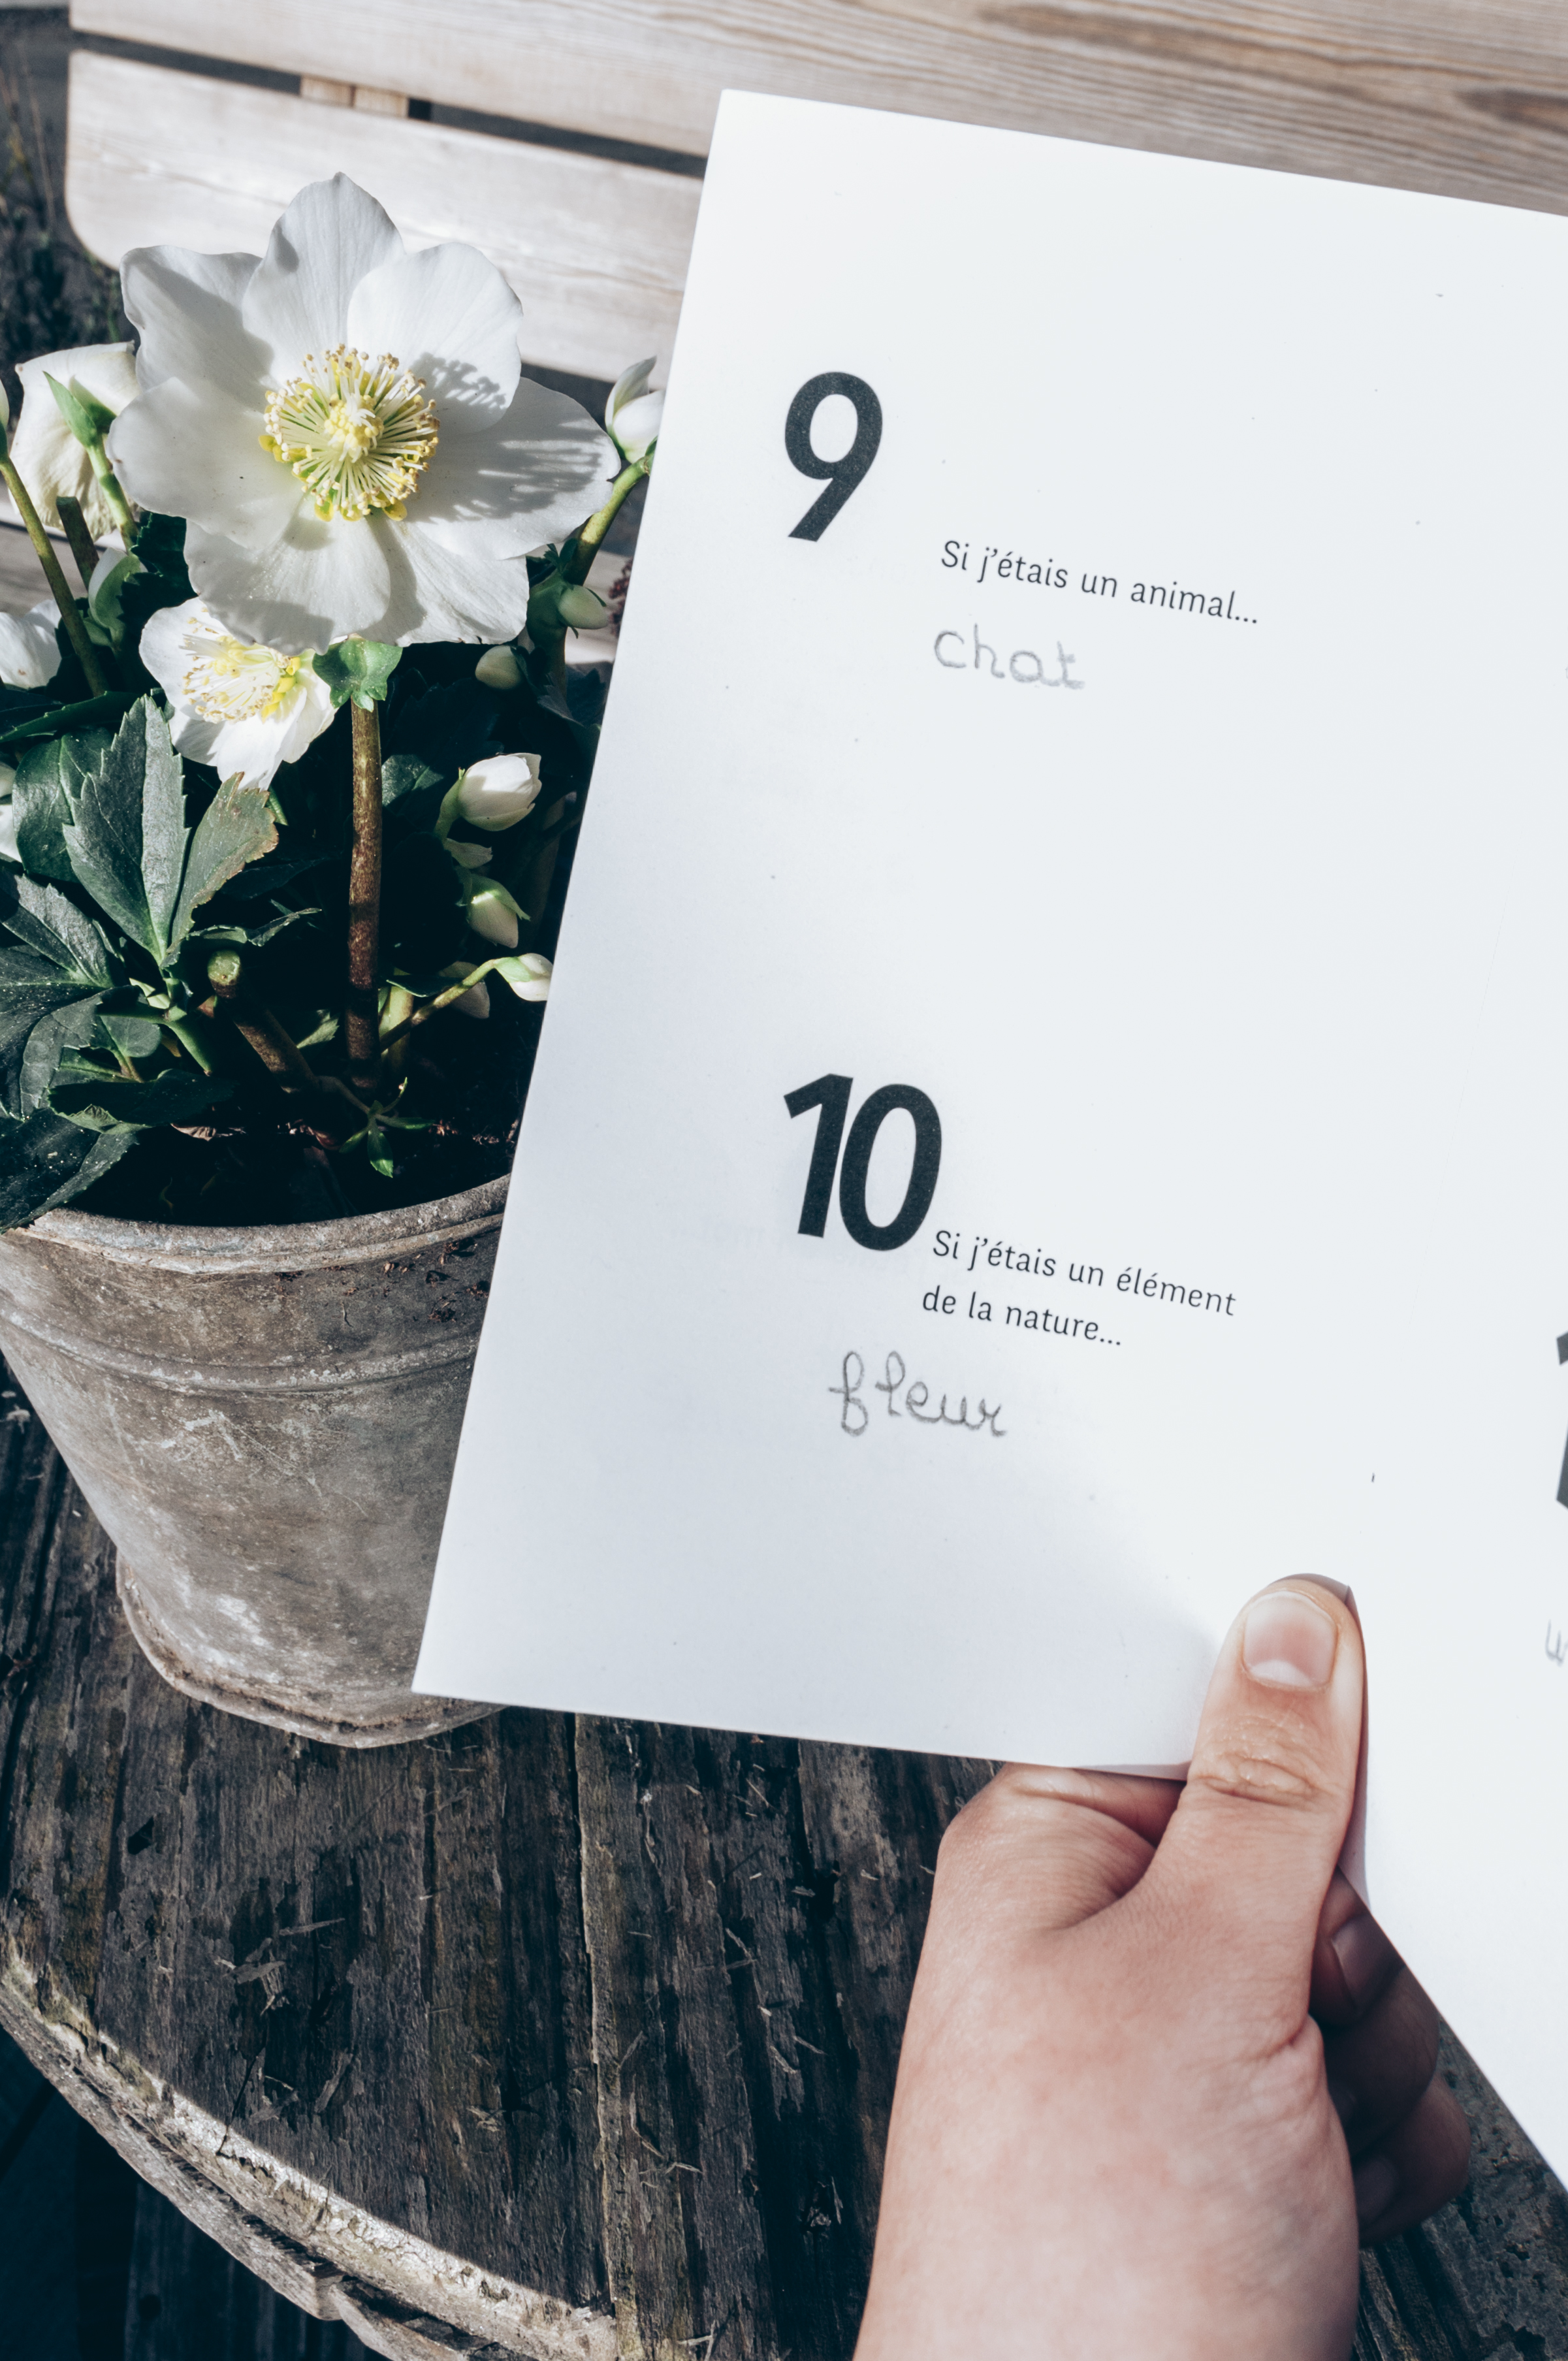 9
Si j'étais un animal...
chat
10
Si j'étais un élément
de la nature...
fleur